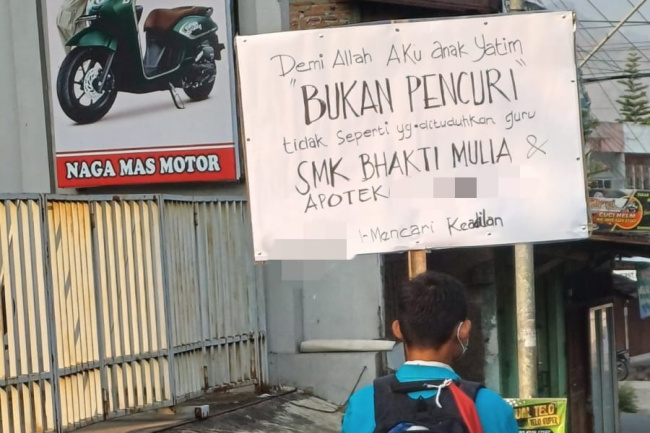 NAGA MAS MOTOR
Demi Allah Aku anak Yatim
"BUKAN PENCURI"
tidak seperti yg dituduhkan guru
SMK BHAKTI MULIA &
APOTEK
Mencari Keadilan
CUCI HELM
TELO